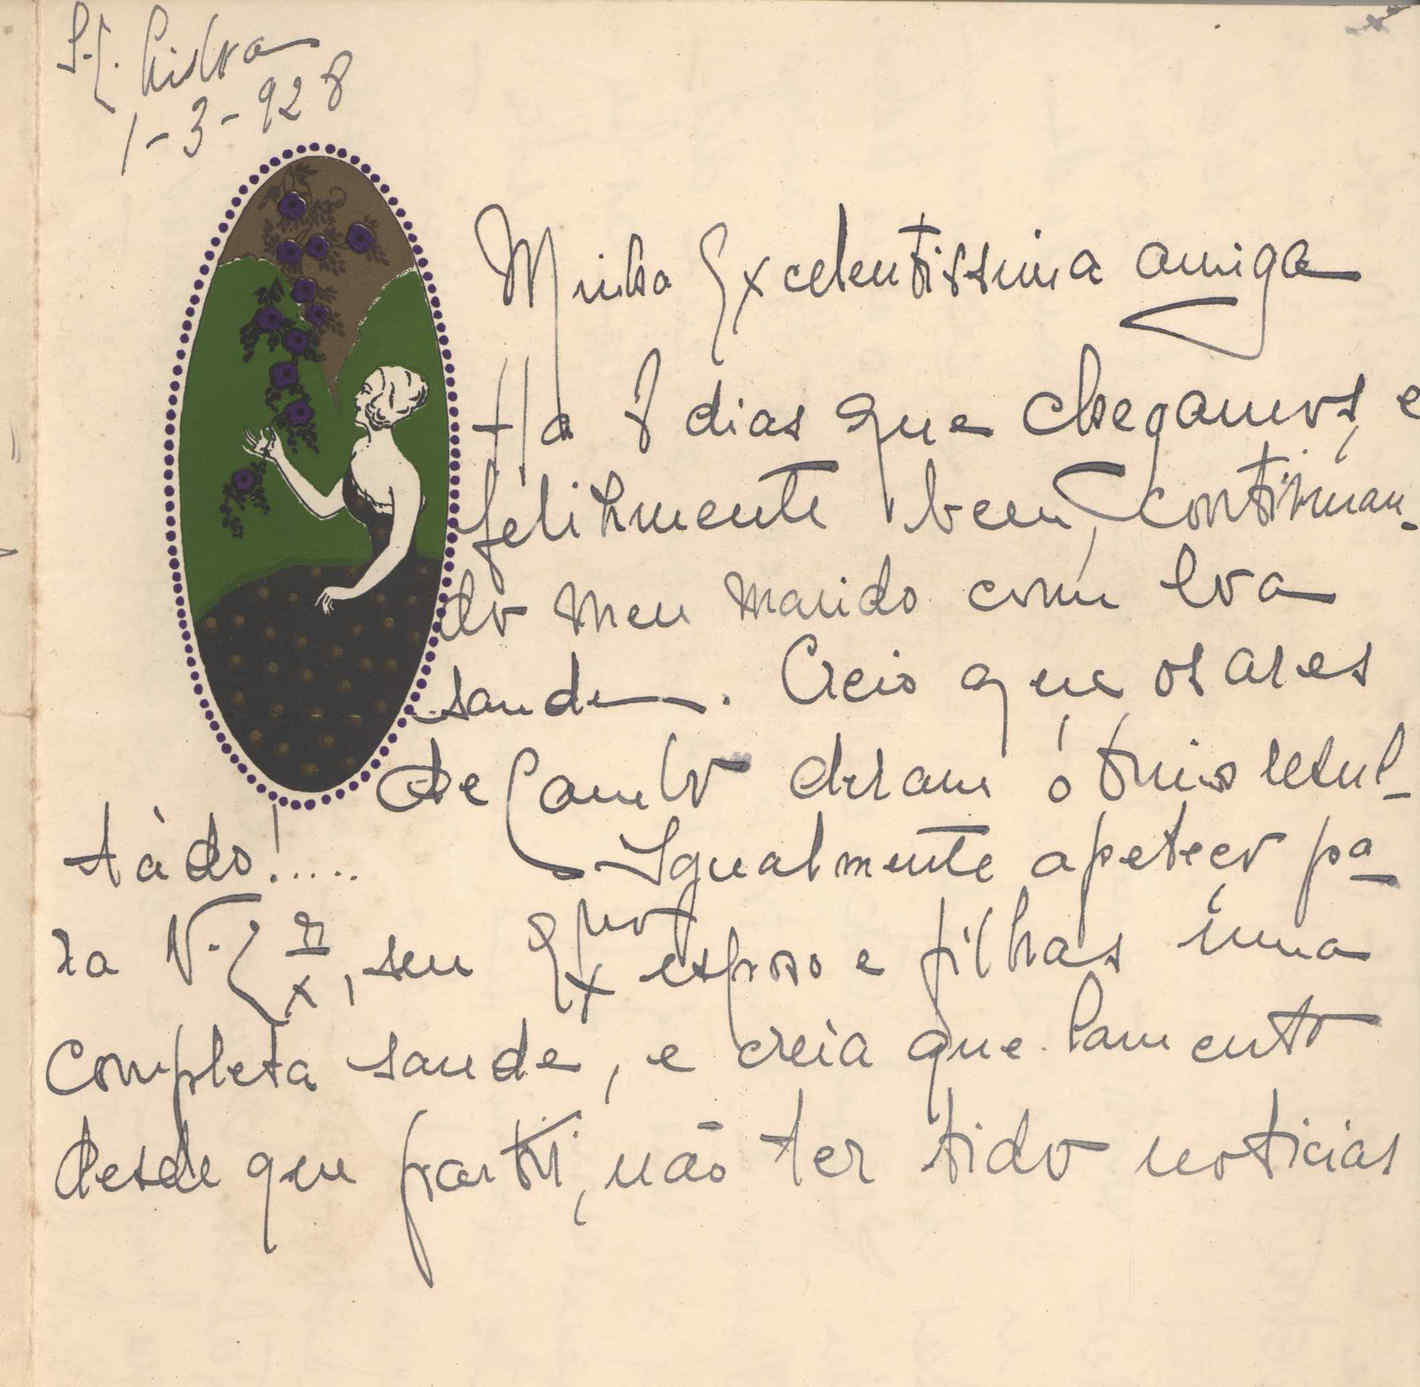 S/C. Lisboa
1-3-928
Minha Excelentissima amiga
Ha 8 dias que chegamos, e
felizmente bem, continuan-
do meu marido com boa
saude. Creio que os ares
de Cambo deram ótimo resul-
tàdo!.....
Igualmente apeteço pa-
ra V. Ex, seu Exmo esposo e filhas uma
completa saude, e creia que lamento
desde que parti, não ter tido noticias